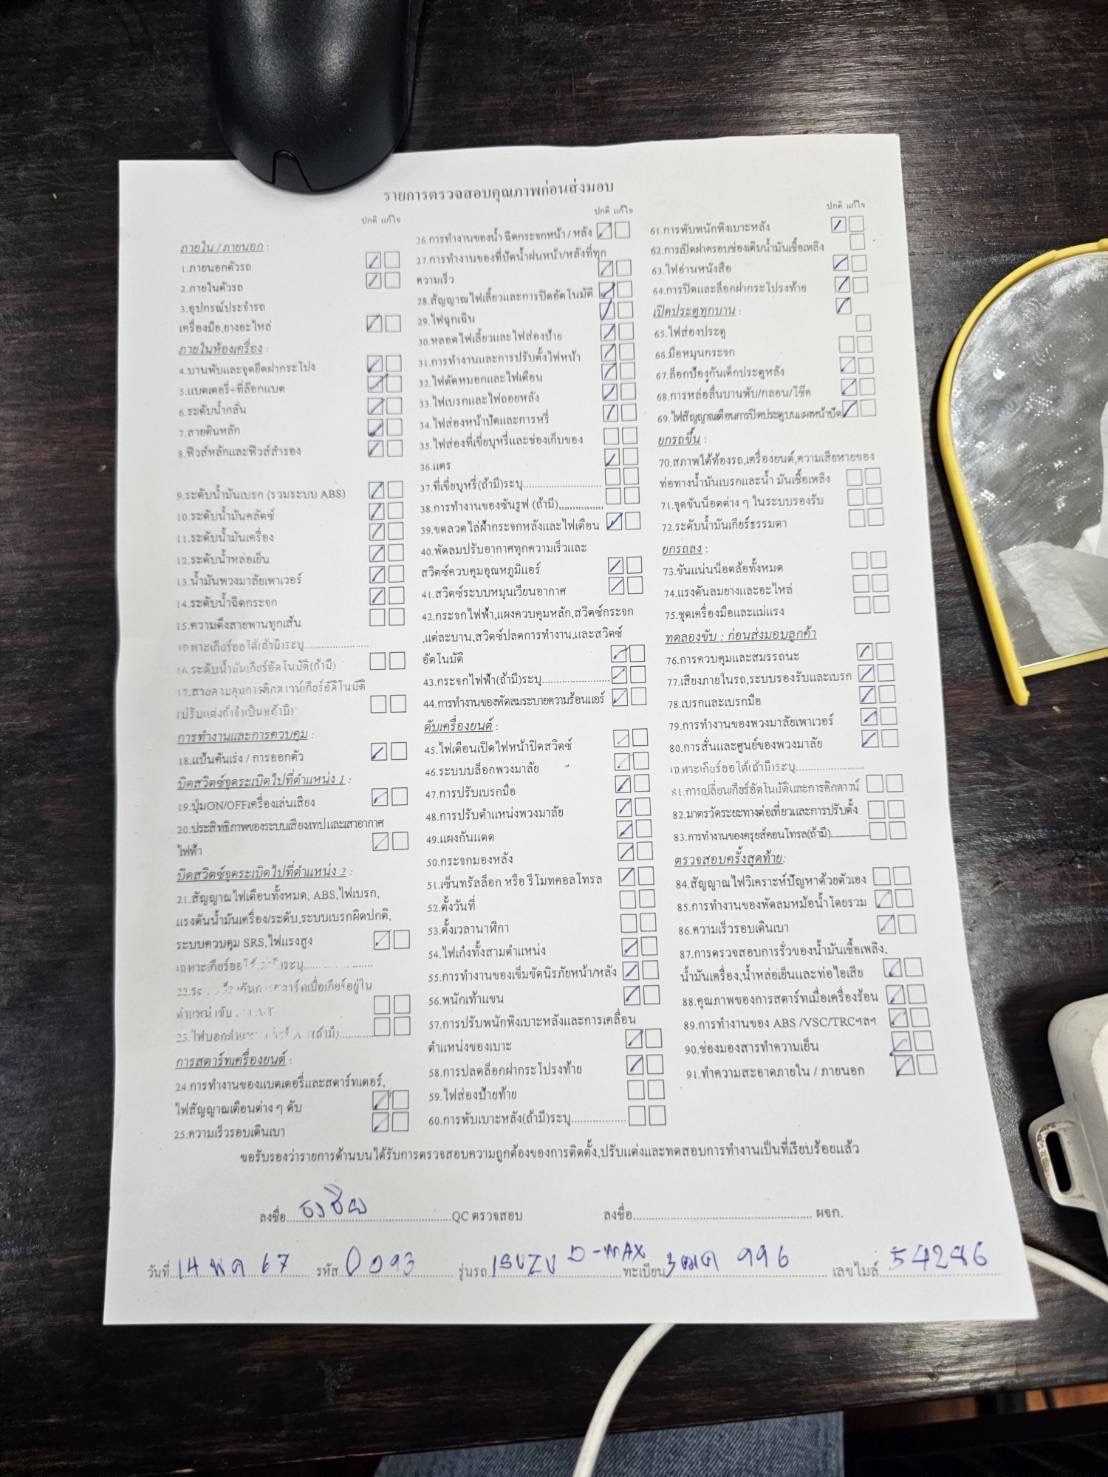 รายการตรวจสอบคุณภาพก่อนส่งมอบ
ปกติ แก้ไข
ภายใน / ภายนอก :
1.ภายนอกตัวรถ
2.ภายในตัวรถ
3.อุปกรณ์ประจำรถ
เครื่องมือ,ยางอะไหล่
ภายในห้องเครื่อง :
4.บานพับและจุดยึดฝากระโปง
5.แบตเตอรี่+ที่ล๊อกแบต
6.ระดับน้ำกลั่น
7.สายดินหลัก
8.ฟิวส์หลักและฟิวส์สำรอง
9.ระดับน้ำมันเบรก (รวมระบบ ABS)
10.ระดับน้ำมันคลัตช์
11.ระดับน้ำมันเครื่อง
12.ระดับน้ำหล่อเย็น
13.น้ำมันพวงมาลัยเพาเวอร์
14.ระดับน้ำฉีดกระจก
15.ความตึงสายพานทุกเส้น
เฉพาะเกียร์ออโต้(ถ้ามี)ระบุ
16.ระดับน้ำมันเกียร์อัตโนมัติ(ถ้ามี)
17.สายควบคุมการคิกดาวน์เกียร์อัตโนมัติ
(ปรับแต่งถ้าจำเป็น
การทำงานและการควบคุม :
18.แป้นคันเร่ง / การออกตัว
บิดสวิตซ์จุดระเบิดไปที่ตำแหน่ง 1 :
19.ปุ่มON/OFFเครื่องเล่นเสียง
20.ประสิทธิภาพของระบบเสียงเทปและเสาอากาศ
ไฟฟ้า
บิดสวิตซ์จุดระเบิดไปที่ตำแหน่ง 2 :
21.สัญญาณไฟเตือนทั้งหมด, ABS,ไฟเบรก,
แรงดันน้ำมันเครื่อง/ระดับ,ระบบเบรกผิดปกติ,
ระบบควบคุม SRS,ไฟแรงสูง
เฉพาะเกียร์ออ ระบุ
22. เมื่อเกียร์อยู่ใน
23.ไฟบอกตำแหน่ง (ถ้ามี)
การสตาร์ทเครื่องยนต์ :
24.การทำงานของแบตเตอรี่และสตาร์ทเตอร์,
ไฟสัญญาณเตือนต่าง ๆ ดับ
25.ความเร็วรอบเดินเบา
ปกติ แก้ไข
26.การทำงานของน้ำ ฉีดกระจกหน้า / หลัง
27.การทำงานของที่ปัดน้ำฝนหน้า/หลังที่ทุก
ความเร็ว
28.สัญญาณไฟเลี้ยวและการปิดอัตโนมัติ
29.ไฟฉุกเฉิน
30.หลอดไฟเลี้ยวและไฟส่องป้าย
31.การทำงานและการปรับตั้งไฟหน้า
32.ไฟตัดหมอกและไฟเตือน
33.ไฟเบรกและไฟถอยหลัง
34.ไฟส่องหน้าปัดและการหรี่
35.ไฟส่องที่เขี่ยบุหรี่และช่องเก็บของ
36.แตร
37.ที่เขี่ยบุหรี่(ถ้ามี)ระบุ
38.การทำงานของซันรูฟ (ถ้ามี)
39.ขดลวดไล่ฝ้ากระจกหลังและไฟเตือน
40.พัดลมปรับอากาศทุกความเร็วและ
สวิตซ์ควบคุมอุณหภูมิแอร์
41.สวิตซ์ระบบหมุนเวียนอากาศ
42.กระจกไฟฟ้า,แผงควบคุมหลัก,สวิตซ์กระจก
,แต่ละบาน,สวิตซ์ปลดการทำงาน,และสวิตซ์
อัตโนมัติ
43.กระจกไฟฟ้า(ถ้ามี)ระบุ
44.การทำงานของพัดลมระบายความร้อนแอร์
ดับเครื่องยนต์ :
45.ไฟเตือนเปิดไฟหน้าปิดสวิตซ์
46.ระบบบล็อกพวงมาลัย
47.การปรับเบรกมือ
48.การปรับตำแหน่งพวงมาลัย
49.แผงกันแดด
50.กระจกมองหลัง
51.เซ็นทรัลล็อก หรือ รีโมทคอลโทรล
52.ตั้งวันที่
53.ตั้งเวลานาฬิกา
54.ไฟเก๋งทั้งสามตำแหน่ง
55.การทำงานของเข็มขัดนิรภัยหน้า/หลัง
56.พนักเท้าแขน
57.การปรับพนักพิงเบาะหลังและการเคลื่อน
ตำแหน่งของเบาะ
58.การปลดล็อกฝากระโปรงท้าย
59.ไฟส่องป้ายท้าย
60.การพับเบาะหลัง(ถ้ามี)ระบุ
ปกติ แก้ไข
61.การพับพนักพิงเบาะหลัง
62.การเปิดฝาครอบช่องเติมน้ำมันเชื้อเพลิง
63.ไฟอ่านหนังสือ
64.การปิดและล็อกฝากระโปรงท้าย
เปิดประตูทุกบาน :
65.ไฟส่องประตู
66.มือหมุนกระจก
67.ล็อกป้องกันเด็กประตูหลัง
68.การหล่อลื่นบานพับ/กลอน/โช๊ค
69.ไฟสัญญาณเตือนการปิดประตูบนแผงหน้าปัด
ยกรถขึ้น :
70.สภาพใต้ท้องรถ,เครื่องยนต์,ความเสียหายของ
ท่อทางน้ำมันเบรกและน้ำ มันเชื้อเพลิง
71.จุดขันน็อตต่าง ๆ ในระบบรองรับ
72.ระดับน้ำมันเกียร์ธรรมดา
ยกรถลง :
73.ขันแน่นน็อตล้อทั้งหมด
74.แรงดันลมยางและอะไหล่
75.ชุดเครื่องมือและแม่แรง
ทดลองขับ : ก่อนส่งมอบลูกค้า
76.การควบคุมและสมรรถนะ
77.เสียงภายในรถ,ระบบรองรับและเบรก
78.เบรกและเบรกมือ
79.การทำงานของพวงมาลัยเพาเวอร์
80.การสั่นและศูนย์ของพวงมาลัย
เฉพาะเกียร์ออโต้(ถ้ามี)ระบุ
81.การเปลี่ยนเกียร์อัตโนมัติและการคิกดาวน์
82.มาตรวัดระยะทางต่อเที่ยวและการปรับตั้ง
83.การทำงานของครูยส์คอนโทรล(ถ้ามี)
ตรวจสอบครั้งสุดท้าย:
84.สัญญาณไฟวิเคราะห์ปัญหาด้วยตัวเอง
85.การทำงานของพัดลมหม้อน้ำโดยรวม
86.ความเร็วรอบเดินเบา
87.การตรวจสอบการรั่วของน้ำมันเชื้อเพลิง,
น้ำมันเครื่อง,น้ำหล่อเย็นและท่อไอเสีย
88.คุณภาพของการสตาร์ทเมื่อเครื่องร้อน
89.การทำงานของ ABS /VSC/TRCฯลฯ
90.ช่องมองสารทำความเย็น
91.ทำความสะอาดภายใน / ภายนอก
ขอรับรองว่ารายการด้านบนได้รับการตรวจสอบความถูกต้องของการติดตั้ง,ปรับแต่งและทดสอบการทำงานเป็นที่เรียบร้อยแล้ว
ลงชื่อ ธงชัย QC ตรวจสอบ ลงชื่อ ผจก.
วันที่ 14 พค 67 รหัส 0093 รุ่นรถ ISUZU D-MAX ทะเบียน 996 เลขไมล์ 54286